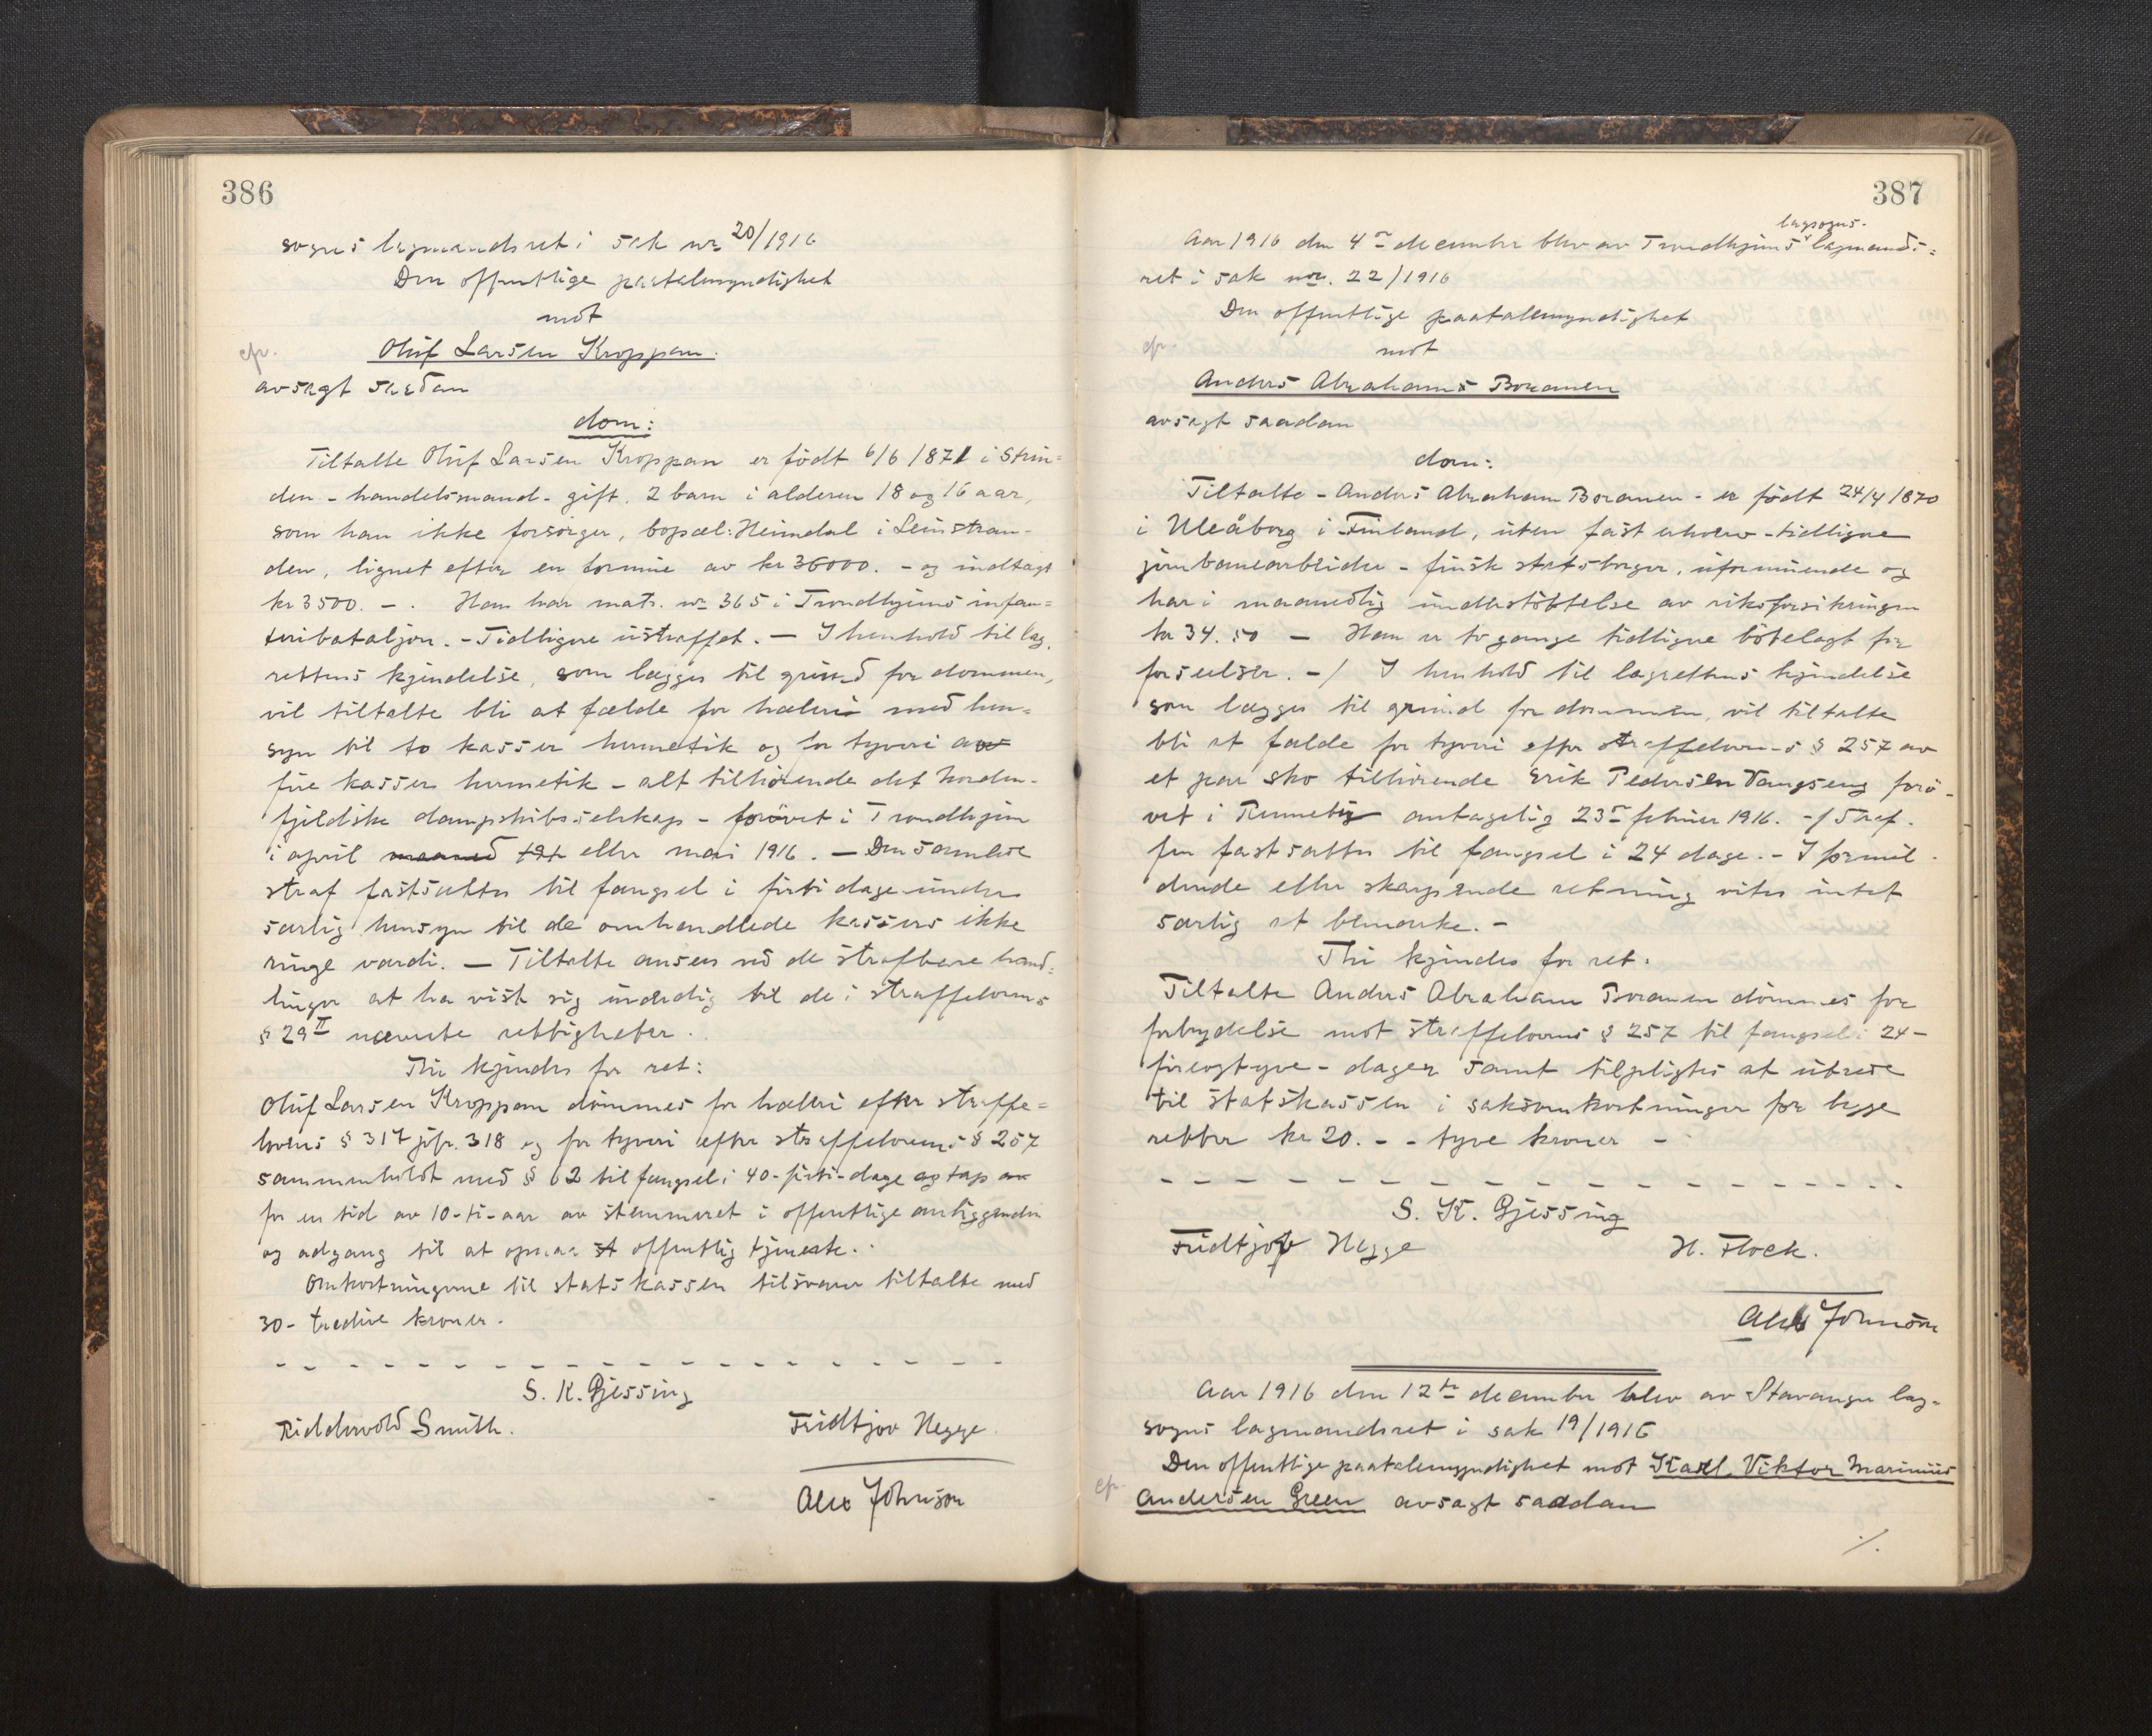 386
sogns lagmandsret i sak nr 20/1916
Den offentlige paatalemyndighet
mot
cfr.
Oluf Larsen Kroppan.
avsagt saadan
dom:
Tiltalte Oluf Larsen Kroppan er født 6/6 1871 i Strin=
den - handelsmand - gift. 2 barn i alderen 18 og 16 aar,
som han ikke forsörger, bopæl: Heimdal i Leinstran-
den, lignet efter en formue av kr 36000. - og indtægt
kr 3500. - . Han har matr. nr 365 i Trondhjems infan=
teribataljon. - Tidligere ustraffet. - I henhold til lag.
rettens kjendelse, som lægges til grund for dommen,
vil tiltalte bli at fælde for hæleri med hen=
syn til to kasser hermetik og for tyveri av
fire kasser hermetik - alt tilhörende det norden-
fjeldske dampskibsselskap - forövet i Trondhjem
i april maaned eller mai 1916. - Den samlede
straf fastsættes til fængsel i firti dage under
særlig hensyn til de omhandlede kassers ikke
ringe værdi. - Tiltalte ansees ved de strafbare hand=
linger at ha vist sig uværdig til de i straffelovens
§ 29 II nævnte rettigheter.
Thi kjendes for ret:
Oluf Larsen Kroppan dömmes for hæleri efter straffe=
lovens § 317 jfr. 318 og for tyveri efter straffelovens § 257
sammenholdt med § 62 til fængsel i 40 - firti - dage og tap
for en tid av 10 - ti - aar av stemmeret i offentlige anliggender
og adgang til at opnaa offentlig tjeneste.
Omkostningerne til statskassen tilsvarer tiltalte med
30 - tredive kroner.
- - - - - - - - - - - - - - - - - - -
S. K. Gjessing
Ridderwold Smith.
Fridtjov Hegge.
Alex Johnson
387
lagsogns
Aar 1916 den 4de december blev av Trondhjems lagmands=
ret i sak nr. 22/1916
Den offentlige paatalemyndighet
cfr.
mot
Anders Abraham Boramen
avsagt saadan
dom:
Tiltalte - Anders Abraham Boramen - er født 24/4 1870
i Uleåborg i Finland, uten fast erhverv - tidligere
jernbanearbeider - finsk statsborger, uformuende og
har i maanedlig understöttelse av riksforsikringen
kr 34.50 - Han er to gange tidligere bötelagt for
forseelser. - / I henhold til lagrettens kjendelse
som lægges til grund for dommen, vil tiltalte
bli at fælde for tyveri efter straffelovens § 257 av
et par sko tilhörende Erik Pedersen Vangseng forö-
vet i antagelig 23de februar 1916. - / Straf.
fen fastsættes til fængsel i 24 dage. - I formil-
dende eller skærpende retning vites intet
særlig at bemerke. -
Thi kjendes for ret:
Tiltalte Anders Abraham Boramen dömmes for
forbrydelse mot straffelovens § 257 til fængsel i 24 -
fireogtyve - dager samt tilpligtes at utrede
til statskassen i saksomkostninger for begge
retter kr 20. - - tyve kroner -
- - - - - - - - - - - - - - - - -
S. K. Gjessing
Fridtjof Hegge
H. Flock.
Alex Johnson
Aar 1916 den 12te december blev av Stavanger lag-
sogns lagmandsret i sak 19/1916
Den offentlige paatalemyndighet mot Karl Viktor Marinius
cfr.
Andersen Green avsagt saadan
./.